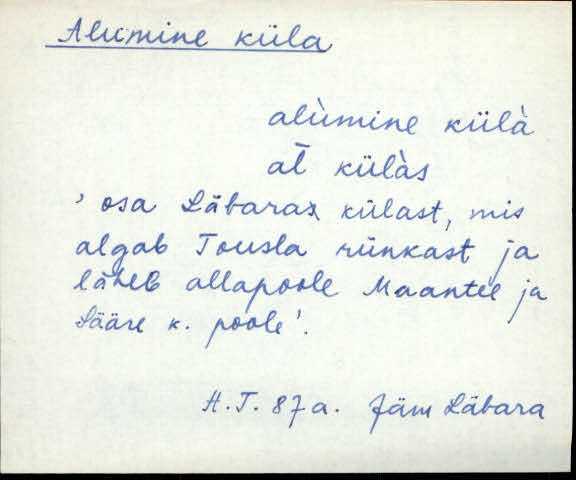 Alumine küla
alùmine külà
at̄ külàs
' osa Läbara küla̱st, mis
algab Tousla rünkast ja
läheb allapoole Maantee ja
Sääre k. poole'.
H.T. 87 a. Jäm Läbara